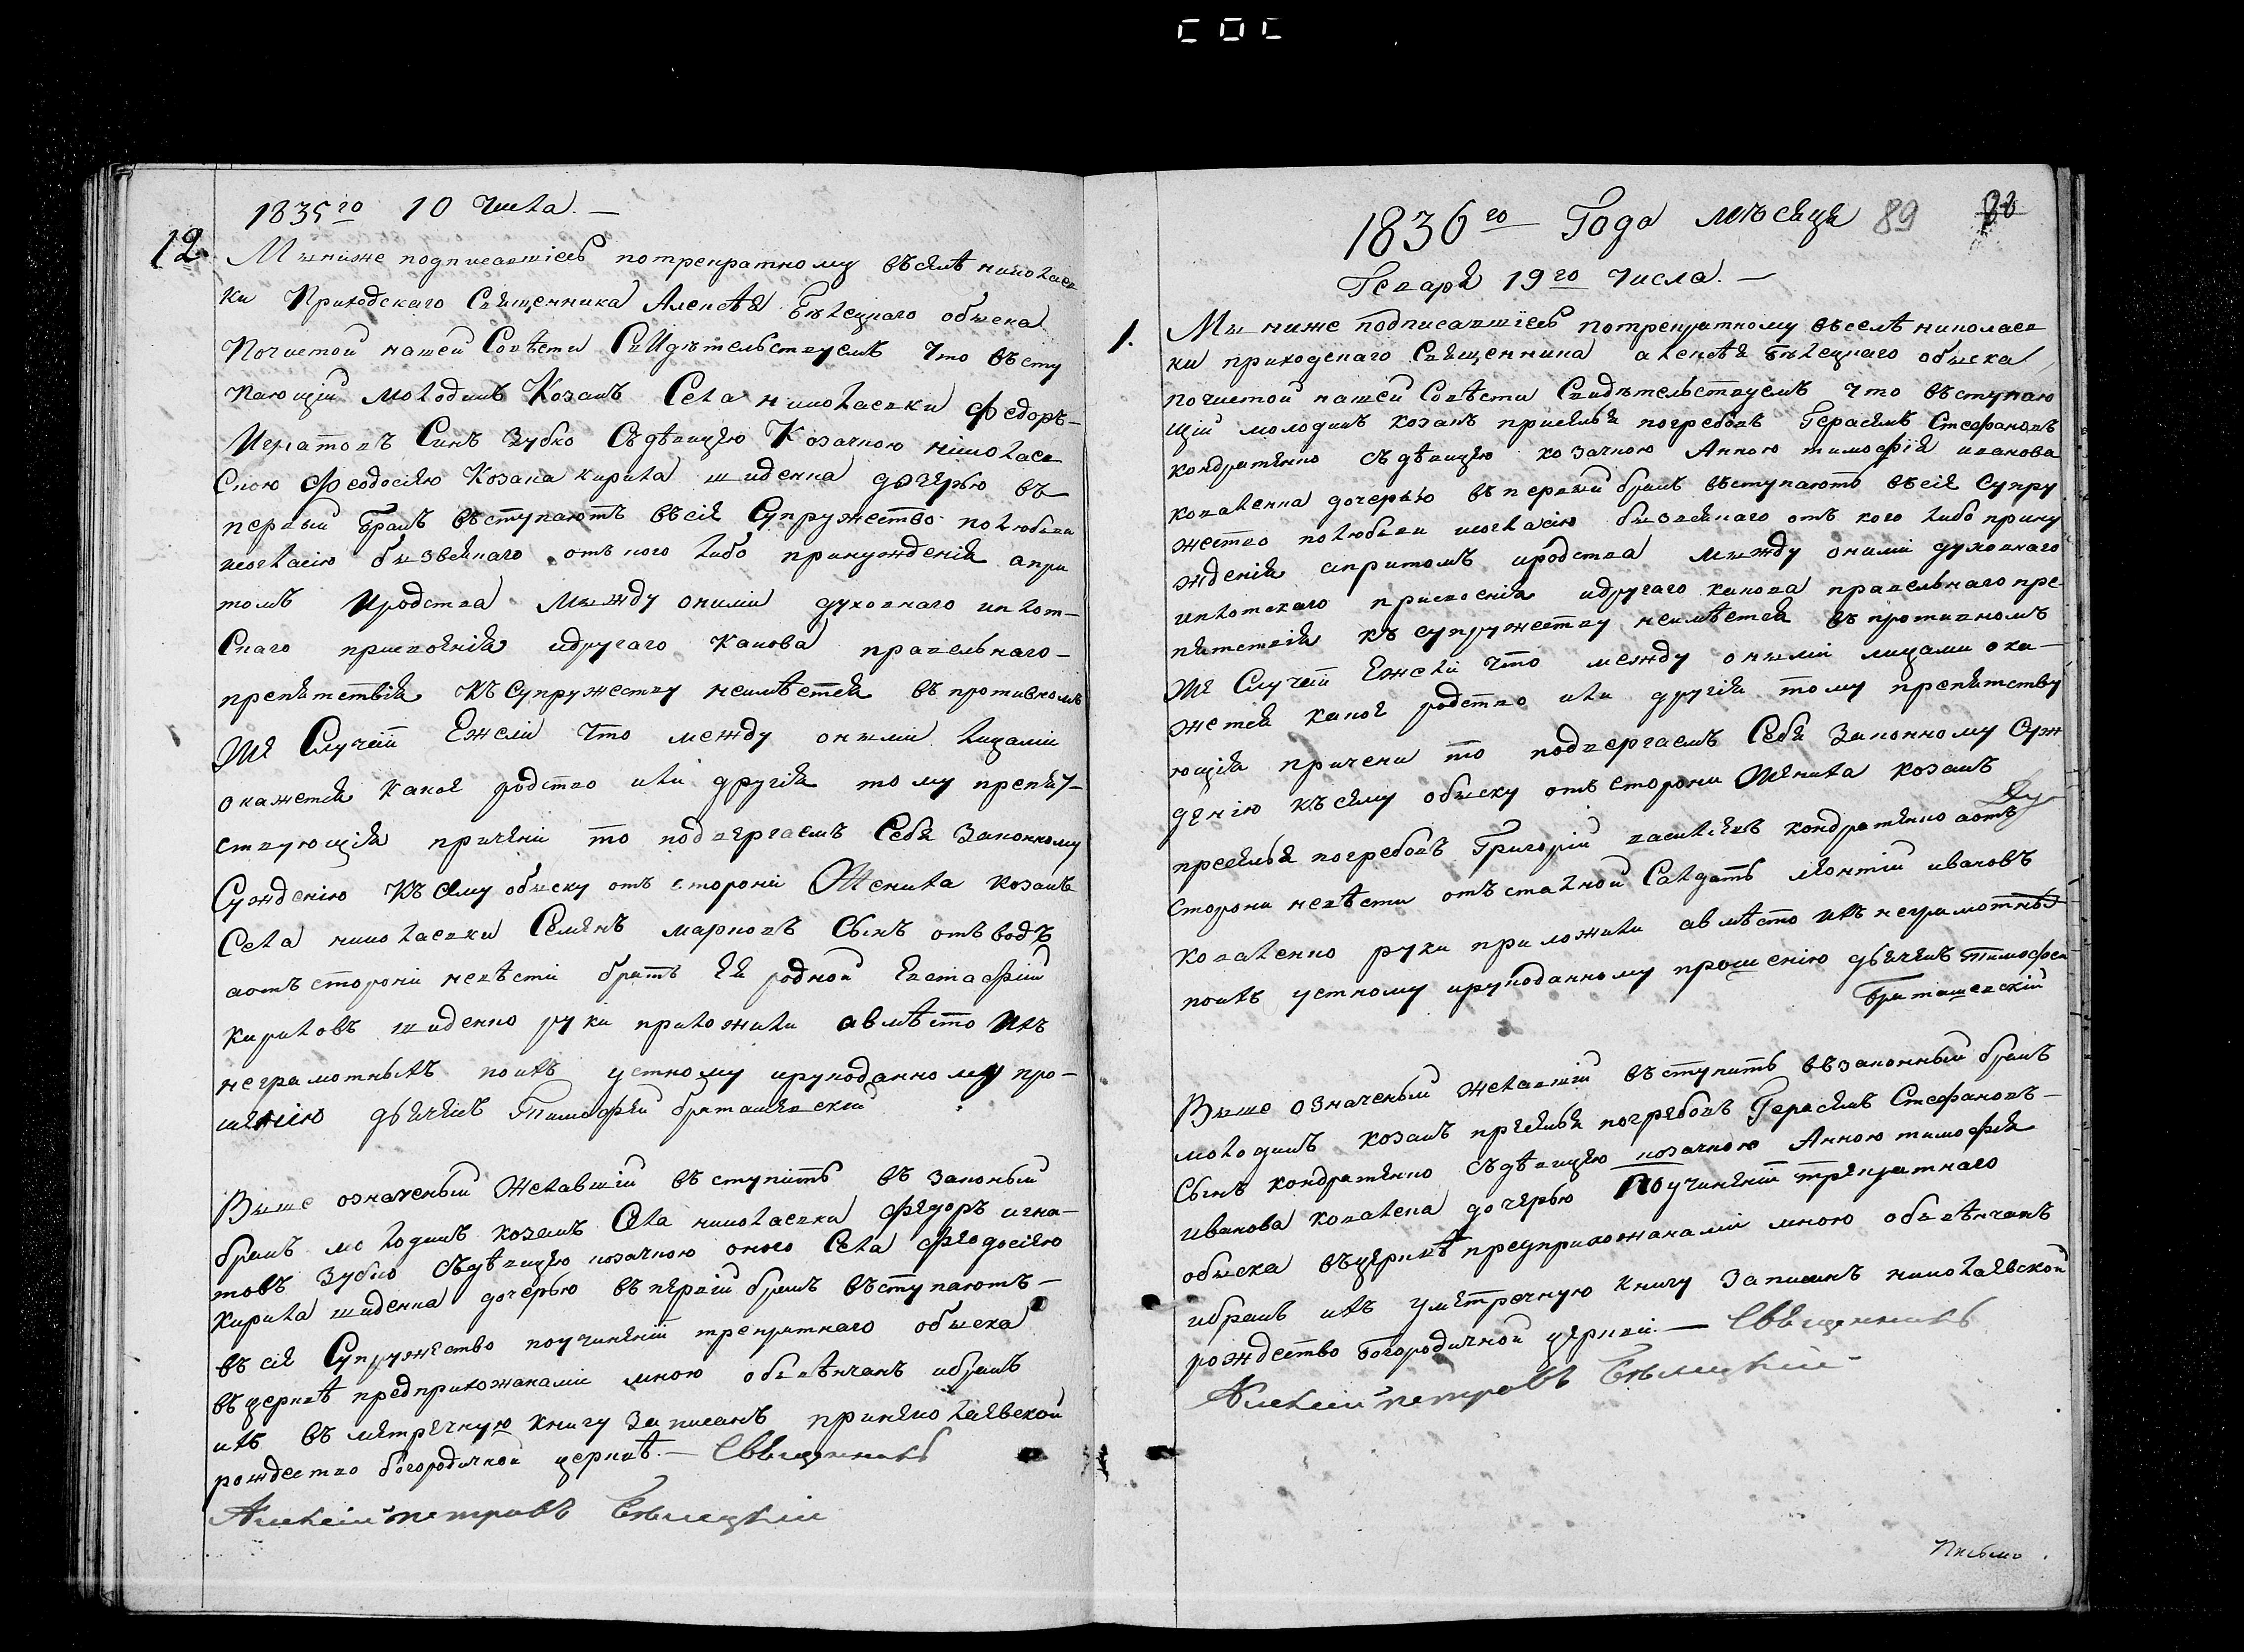 1835го 10 числа. —
12. Мы ниже подписавшіесь потрекратному въселѣ николаев
ки Приходскаго Священника Алексѣя Бѣлецкаго обыска
Почистой нашей Совѣсти Свидѣтельствуемъ что въсту
пающій молодикъ Козакъ Села николаевки Федоръ –
Игнатовъ Синъ Зубко Съдѣвицею Козачкою николаев
Скою Феодосіею Козака кирила шиденка дочерью въ
первый бракъ въступаютъ въсія Супружество полюбви
исогласію безвсякаго откого либо принужденія апри
томъ иродства между оними духовнаго иплот –
Скаго присвоенія идругаго какова правельнаго –
препятствія къСупружеству неимѣется въпротивномъ
же Случаи Ежели что между оными лицами
окажется какое родство или другія тому препят –
ствующія причени то подвергаемъ Себя Законному
Сужденію КъСему обыску отъ стороны Жениха козакъ
Села николаевки Семенъ марковъ Сынъ отъводъ
аотъ стороні невѣсти братъ Ея родной Евстафій
кириловъ шиденко руки приложили авмѣсто ихъ
неграмотныхъ поихъ устному ируподанному про –
шенію дьячекъ Тимофей браташевскій
Выше означеный желавшій въступитъ въ законый
бракъ молодикъ козакъ Села николаевки федоръ игна –
товъ Зубко съдѣвицею козачкою оного Села феодосіею
Кирила шиденка дочерью въпервій бракъ въступаютъ –
въсія Супружество поучиненій трекратнаго обыска
въцерквѣ предприхожанами мною обвѣнчанъ ибракъ
ихъ въметречную книгу Записанъ приниколаевской
рождество богородичной церквѣ. — Священникъ
Алексій петровъ Бѣлецкій
1836го Года мѣсяця 89
Генваря 19го числа. —
1. Мы ниже подписавшіесь потрекратному въселѣ николаев
ки приходскаго Священника алексѣя Бѣлецкаго обыска
почистой нашей Совѣсти Свидѣтельствуемъ что въступаю
щій молодикъ козакъ приселья погребовъ Герасимъ Стефановъ
кондратенко съдѣвицею козачкою Анною тимофія иванова
коваленка дочерью въпервый бракъ въступаютъ въсія Супру
жество полюбви исогласію безвсякаго отъ кого либо прину
жденія апритомъ иродства между оними духовнаго
иплотскаго присвоенія идругаго какова правельнаго пре
пятствія къ супружеству неимѣется въпротивномъ
же Случаи Ежели что между оными лицами ока –
жется какое родство или другія тому препятству
ющія причени то подвергаемъ Себя Законному Суж
денію късему обыску отъ стороны Жениха козакъ
преселья погребовъ Григорій василіевъ кондратенко аотъ
стороны невѣсти отъставной Салдатъ леонтій ивановъ
коваленко руки приложили авмѣсто ихъ неграмотныхъ
поихъ устному ируподанному прошенію дьячекъ тимофей
браташевскій
Выше означеный желавшій въступитъ възаконный бракъ
молодикъ козакъ преселья погребовъ Герасимъ Стефановъ –
Сынъ кондратенко съдѣвицею козачкою Анною тимофія
иванова ковалена дочерью Поучиненій трекратнаго
обыска въцерквѣ предприхожанами мною обвѣнчанъ
ибракъ ихъ уметречную книгу Записанъ николаевской
рождество богородичной церквій. — Священникъ
Алексій петровъ Бѣлецкій